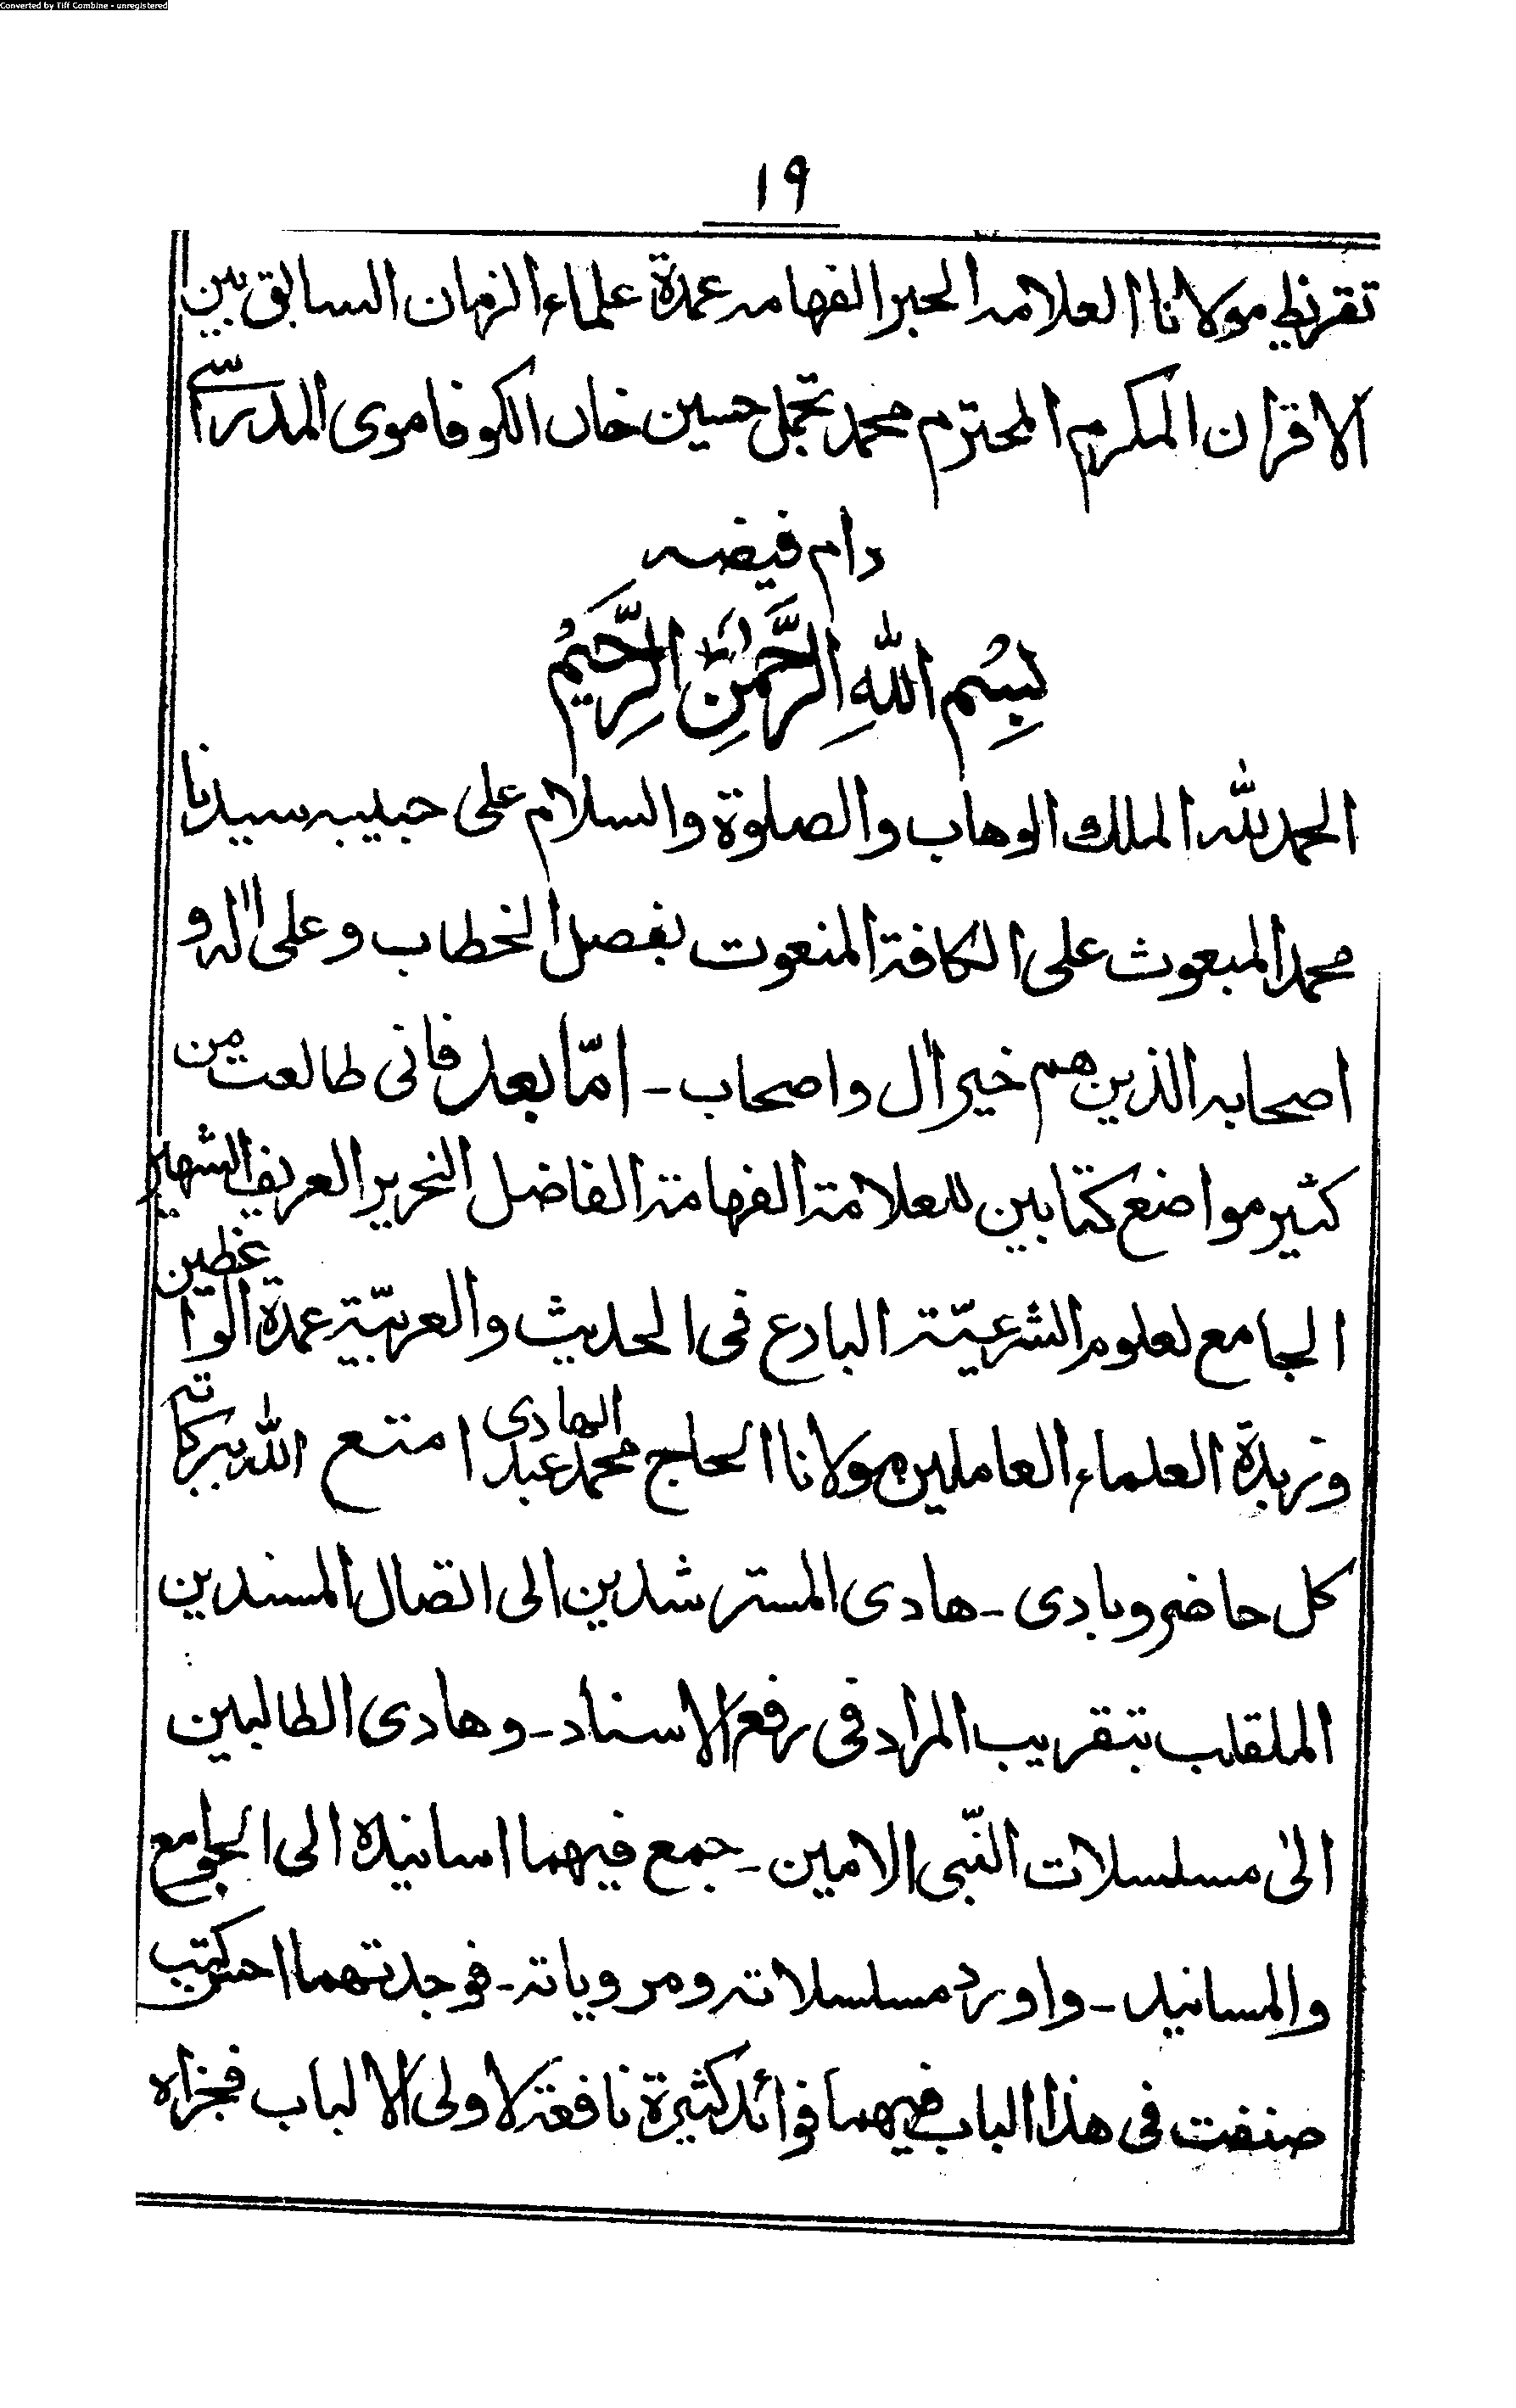 Converted by Tiff Combine - unregistered
١٩
تقريظ مولانا العلامه الحبر الفهامه عمدة علماء الزمان السابق بين
الاقران المكرم المحترم محمد تجمل حسين خاں الكوفاموى المدراسى
دام فيضه
بِسْمِ اللهِ الرَّحْمٰنِ الرَّحِيْمِ
الحمد لله الملك الوهاب والصلوة والسلام على حبيبه سيدنا
محمد المبعوث على الكافة المنعوت بفصل الخطاب وعلى اٰله و
اصحابه الذين هم خير اٰل واصحاب - امّا بعد فانى طالعت من
كثير مواضع كتابين للعلامة الفهامة الفاضل النحرير العريف الشهير
الجامع لعلوم الشرعيّة البارع فى الحديث والعربيّة عمدة الواعظين
وزبدة العلماء العاملين مولانا الحاج محمد عبد الهادى امتع الله ببركاته
كل حاضر وبادى - هادى المسترشدين الى اتصال المسندين
الملقلب بتقريب المراد فى رفع الاسناد - وهادى الطالبين
الىٰ مسلسلات النّبى الامين - جمع فيهما اسانيده الى الجوامع
والمسانيد - واورد مسلسلاته ومروياته - فوجدتهما احسن كتب
صنفت فى هذا الباب فيهما فوائد كثيرة نافعة لاولى الالباب فجزاه